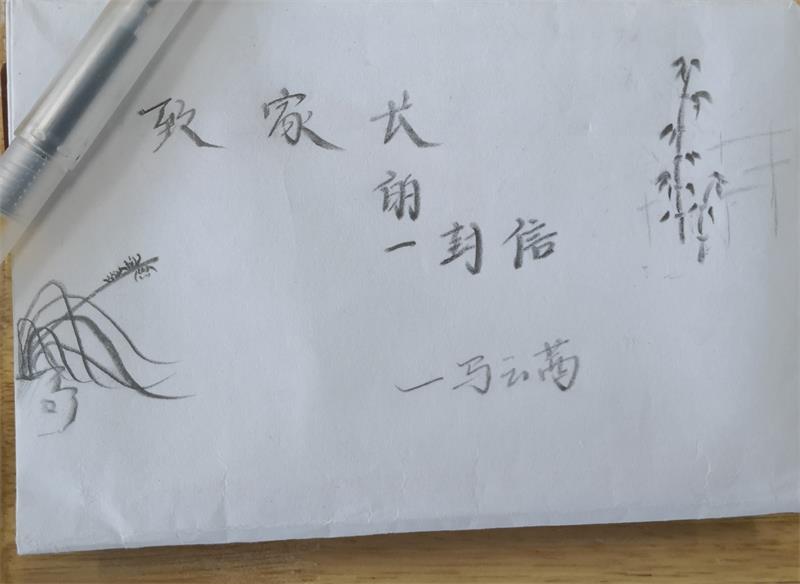 致家长
的
一封信
—马云茜